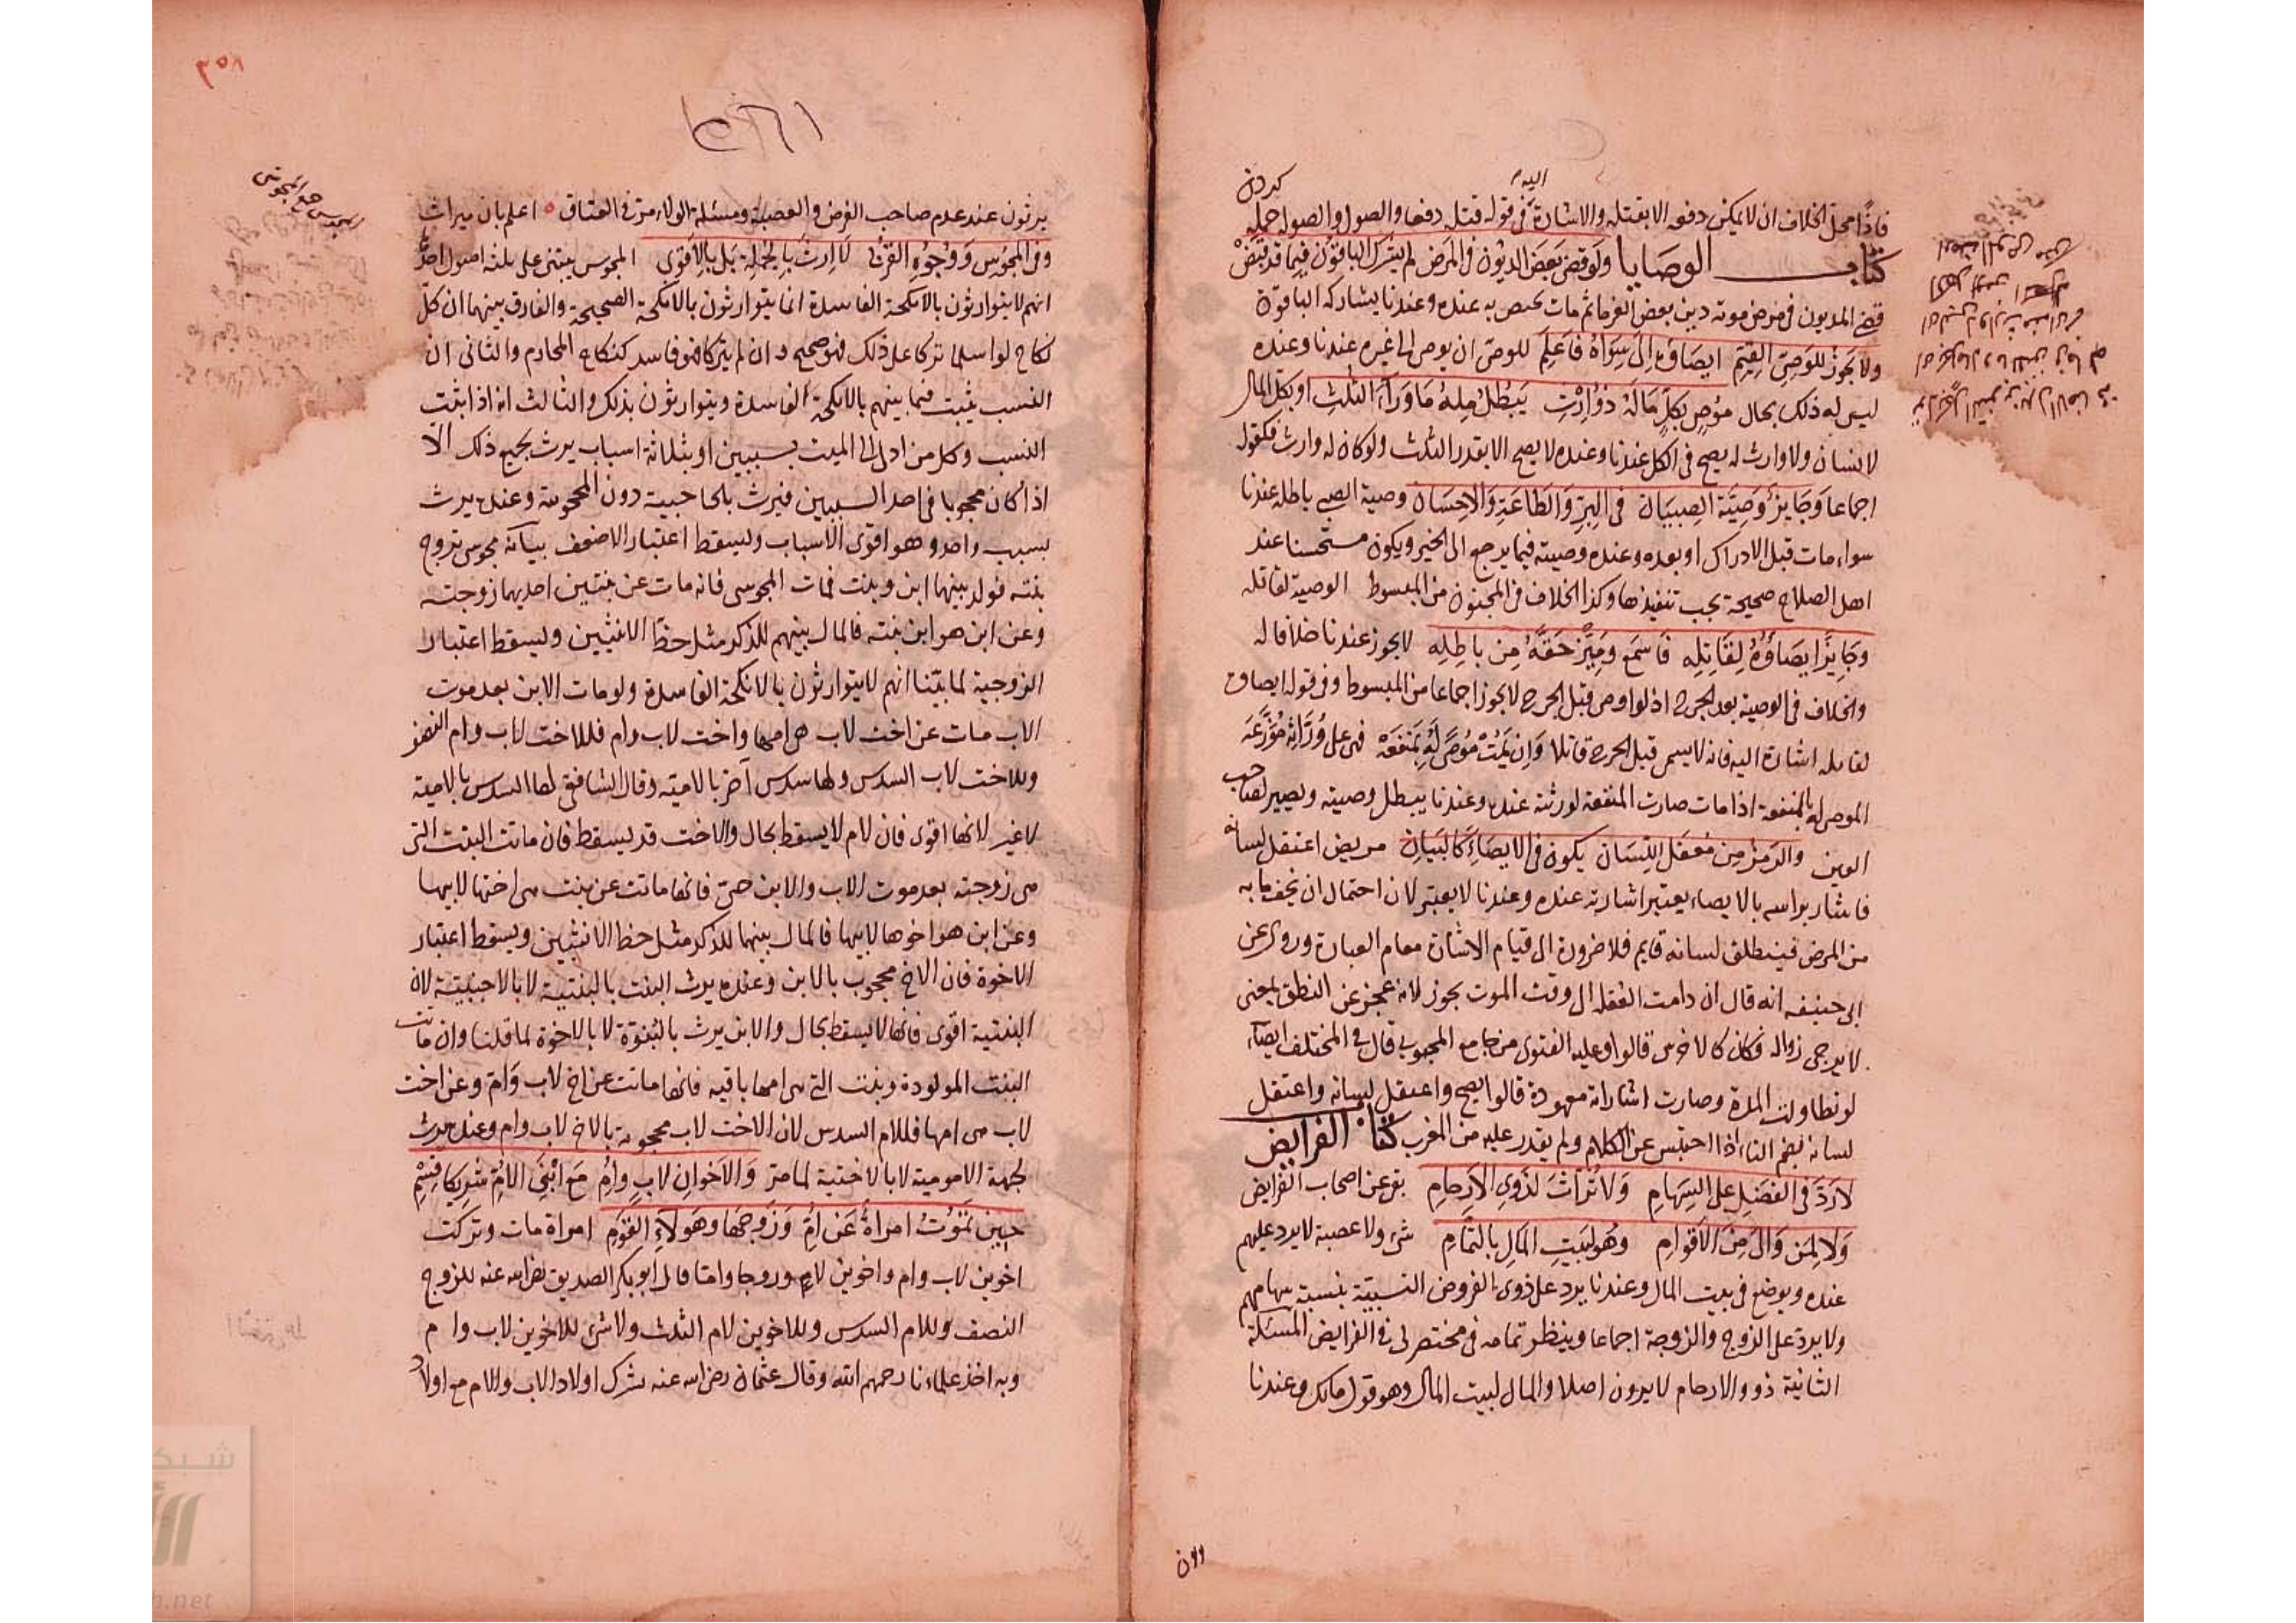 فاذا محل الخلاف ان لا يمكن دفعه الا بقتله والاشارة اليه في قوله قتله دفعا والصول والصولة حمله كردن
كتاب الوصايا ولو قضى بعض الديون في المرض لم يشرك الباقون فيما قد قبض
قضى المديون في مرض موته دين بعض الغرماء ثم مات يختص به عنده وعندنا يشاركه الباقون
ولا يجوز للوصي القيم ايصاؤه الى سواه فاعلم للوصي ان يوصي الى غيره عندنا وعنده
ليس له ذلك بحال موص بكل ماله ذو ارث يبطل منه ما وراء الثلث اوصى بكل المال
لانسان ولا وارث له يصح في الكل عندنا وعنده لا يصح الا بقدر الثلث ولو كان له وارث فكقوله
اجماعا وجايز وصية الصبيان في البر والطاعة والاحسان وصية الصبي باطلة عندنا
سواء مات قبل الادراك او بعده وعنده وصيته فيما يرجع الى الخير ويكون مستحسنا عند
اهل الصلاح صحيحة يجب تنفيذها وكذا الخلاف في المجنون من المبسوط الوصية لقاتله
وجايز ايصاؤه لقاتله فاسمع وميز حقه من باطله لا يجوز عندنا خلافا له
والخلاف في الوصية بعد الجرح اذ لو اوصى قبل الجرح لا يجوز اجماعا من المبسوط وفي قوله ايصاؤه
لقاتله اشارة اليه فانه لا يسمى قبل الجرح قاتلا وان يمت موصى له بمنفعة فهي على وراثه موزعة
الموصى له بالمنفعة اذا مات صارت المنفعة لورثته عنده وعندنا يبطل وصيته ويصير لصاحب
العين والرمز من معتقل اللسان يكون في الايصاء كالبيان مريض اعتقل لسانه
فاشار براسه بالايصاء يعتبر اشارته عنده وعندنا لا يعتبر لان احتمال ان يخف ما به
من المرض فينطلق لسانه قايم فلا ضرورة الى قيام الاشارة مقام العبارة وروى عن
ابي حنيفه انه قال ان دامت العقلة الى وقت الموت يجوز لانه عجز عن النطق بمعنى
لا يرجى زواله فكان كالاخرس قالوا وعليه الفتوى من جامع المحبوبي قال في المختلف ايضا
لو تطاولت المدة وصارت اشاراته معهودة قالوا يصح واعتقل لسانه واعتقل
لسانه بضم التاء اذا احتبس عن الكلام ولم يقدر عليه من المغرب كتاب الفرايض
لا رد في الفضل على السهام ولا تراث لذوي الارحام بقي عن اصحاب الفرايض
ولا لمن والى من الاقوام وهو لبيت المال بالتمام شيء ولا عصبة لا يرد عليهم
عنده ويوضع في بيت المال وعندنا يرد على ذوي الفروض النسبية بنسبة سهامهم
ولا يرد على الزوج والزوجة اجماعا وينظر تمامه في مختصر لى في الفرايض المسئلة
الثانية ذوو الارحام لا يرثون اصلا والمال لبيت المال وهو قول مالك وعندنا
يرثون عند عدم صاحب الفرض والعصبة ومسئلة الولاء مرت في العتاق اعلم بان ميراث
وفي المجوس ووجوه القربى لا ارث بالجملة بل بالاقوى المجوس يبتنى على ثلثة اصول احدها
انهم لا يتوارثون بالانكحة الفاسدة انما يتوارثون بالانكحة الصحيحة والفارق بينهما ان كل
نكاح لو اسلما تركا على ذلك فهو صحيح وان لم يتركا فهو فاسد كنكاح المحارم والثاني ان
النسب يثبت فيما بينهم بالانكحة الفاسدة ويتوارثون بذلك والثالث انه اذا ثبت
النسب وكل من ادلى الى الميت بسببين او بثلاثة اسباب يرث بجميع ذلك الا
اذا كان محجوبا في احد السببين فيرث بالحاجبية دون المحجوبة وعنده يرث
بسبب واحد وهو اقوى الاسباب ويسقط اعتبار الاضعف بيانه مجوسي تزوج
بنته فولد بينهما ابن وبنت فمات المجوسي فانه مات عن بنتين احديهما زوجته
وعن ابن هو ابن بنته فالمال بينهم للذكر مثل حظ الانثيين ويسقط اعتبار
الزوجية لما بينا انهم لا يتوارثون بالانكحة الفاسدة ولو مات الابن بعد موت
الاب مات عن اخت لاب هي امها واخت لاب وام فللاخت لاب وام النصف
وللاخت لاب السدس ولها سدس آخر بالامية وقال الشافعي لها السدس بالامية
لا غير لانها اقوى فان لام لا يسقط بحال والاخت قد يسقط فان ماتت البنت التي
هي زوجته بعد موت الاب والابن حي فانها ماتت عن بنت هي اختها لابيها
وعن ابن هو اخوها لابيها فالمال بينهما للذكر مثل حظ الانثيين ويسقط اعتبار
الاخوة فان الاخ محجوب بالابن وعنده يرث البنت بالبنتية لا بالاجنبية لان
البنتية اقوى فانها لا يسقط بحال والابن يرث بالبنوة لا بالاخوة لما قلنا وان ماتت
البنت المولودة وبنت التي هي امها باقيه فانها ماتت عن اخ لاب وام وعن اخت
لاب هي امها فللام السدس لان الاخت لاب محجوبة بالاخ لاب وام وعنده يرث
لجهة الامومية لا بالاختية لما مر والاخوان لاب وام مع ابني الام شريكا قسم
حين تموت امراة عن ام وزوجها وهولاء القوم امراة مات وتركت
اخوين لاب وام واخوين لام وزوجا واما قال ابو بكر الصديق رضى الله عنه للزوج
النصف وللام السدس وللاخوين لام الثلث ولا شئ للاخوين لاب وام
وبه اخذ علماءنا رحمهم الله وقال عثمان رضى الله عنه يشرك اولاد الاب والام مع اولاد